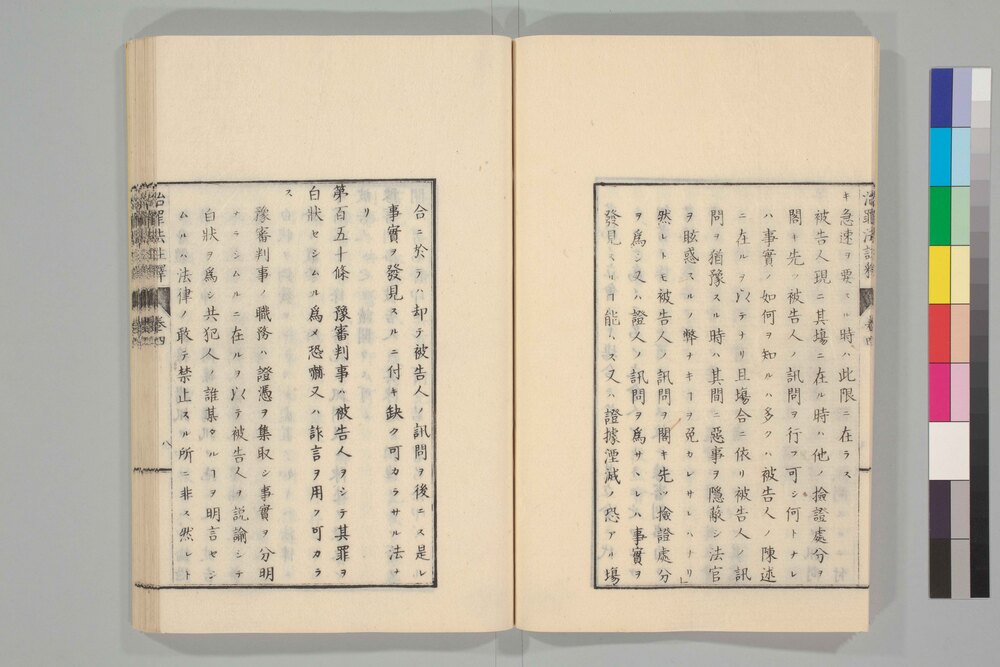 キ急速ヲ要スル時ハ此限ニ在ラス
被告人現ニ其塲ニ在ル時ハ他ノ撿證處分ヲ
閣キ先ツ被告人ノ訊問ヲ行フ可シ何トナレ
ハ事實ノ如何ヲ知ルハ多クハ被告人ノ陳述
ニ在ルヲ以テナリ且塲合ニ依リ被告人ノ訊
問ヲ猶豫スル時ハ其間ニ惡事ヲ隱蔽シ法官
ヲ眩惑スルノ弊ナキヿヲ免カレサレハナリ
然レトモ被告人ノ訊問ヲ閣キ先ツ撿證處分
ヲ爲シ又ハ證人ノ訊問ヲ爲サヽレハ事實ヲ
發見スルヿ能ハス又ハ證據湮滅ノ恐アル塲
合ニ於テハ却テ被告人ノ訊問ヲ後ニス是レ
事實ヲ發見スルニ付キ缺ク可カラサル法ナ
リ
第百五十條 豫審判事ハ被告人ヲシテ其罪ヲ
白狀セシムル爲メ恐嚇又ハ詐言ヲ用フ可カラ
ス
豫審判事ノ職務ハ證憑ヲ集取シ事實ヲ分明
ナラシムルニ在ルヲ以テ被告人ヲ説諭シテ
白狀ヲ爲シ共犯人ノ誰某タルヿヲ明言セシ
ムルハ法律ノ敢テ禁止スル所ニ非ス然レト
治罪法註釋 卷四
八